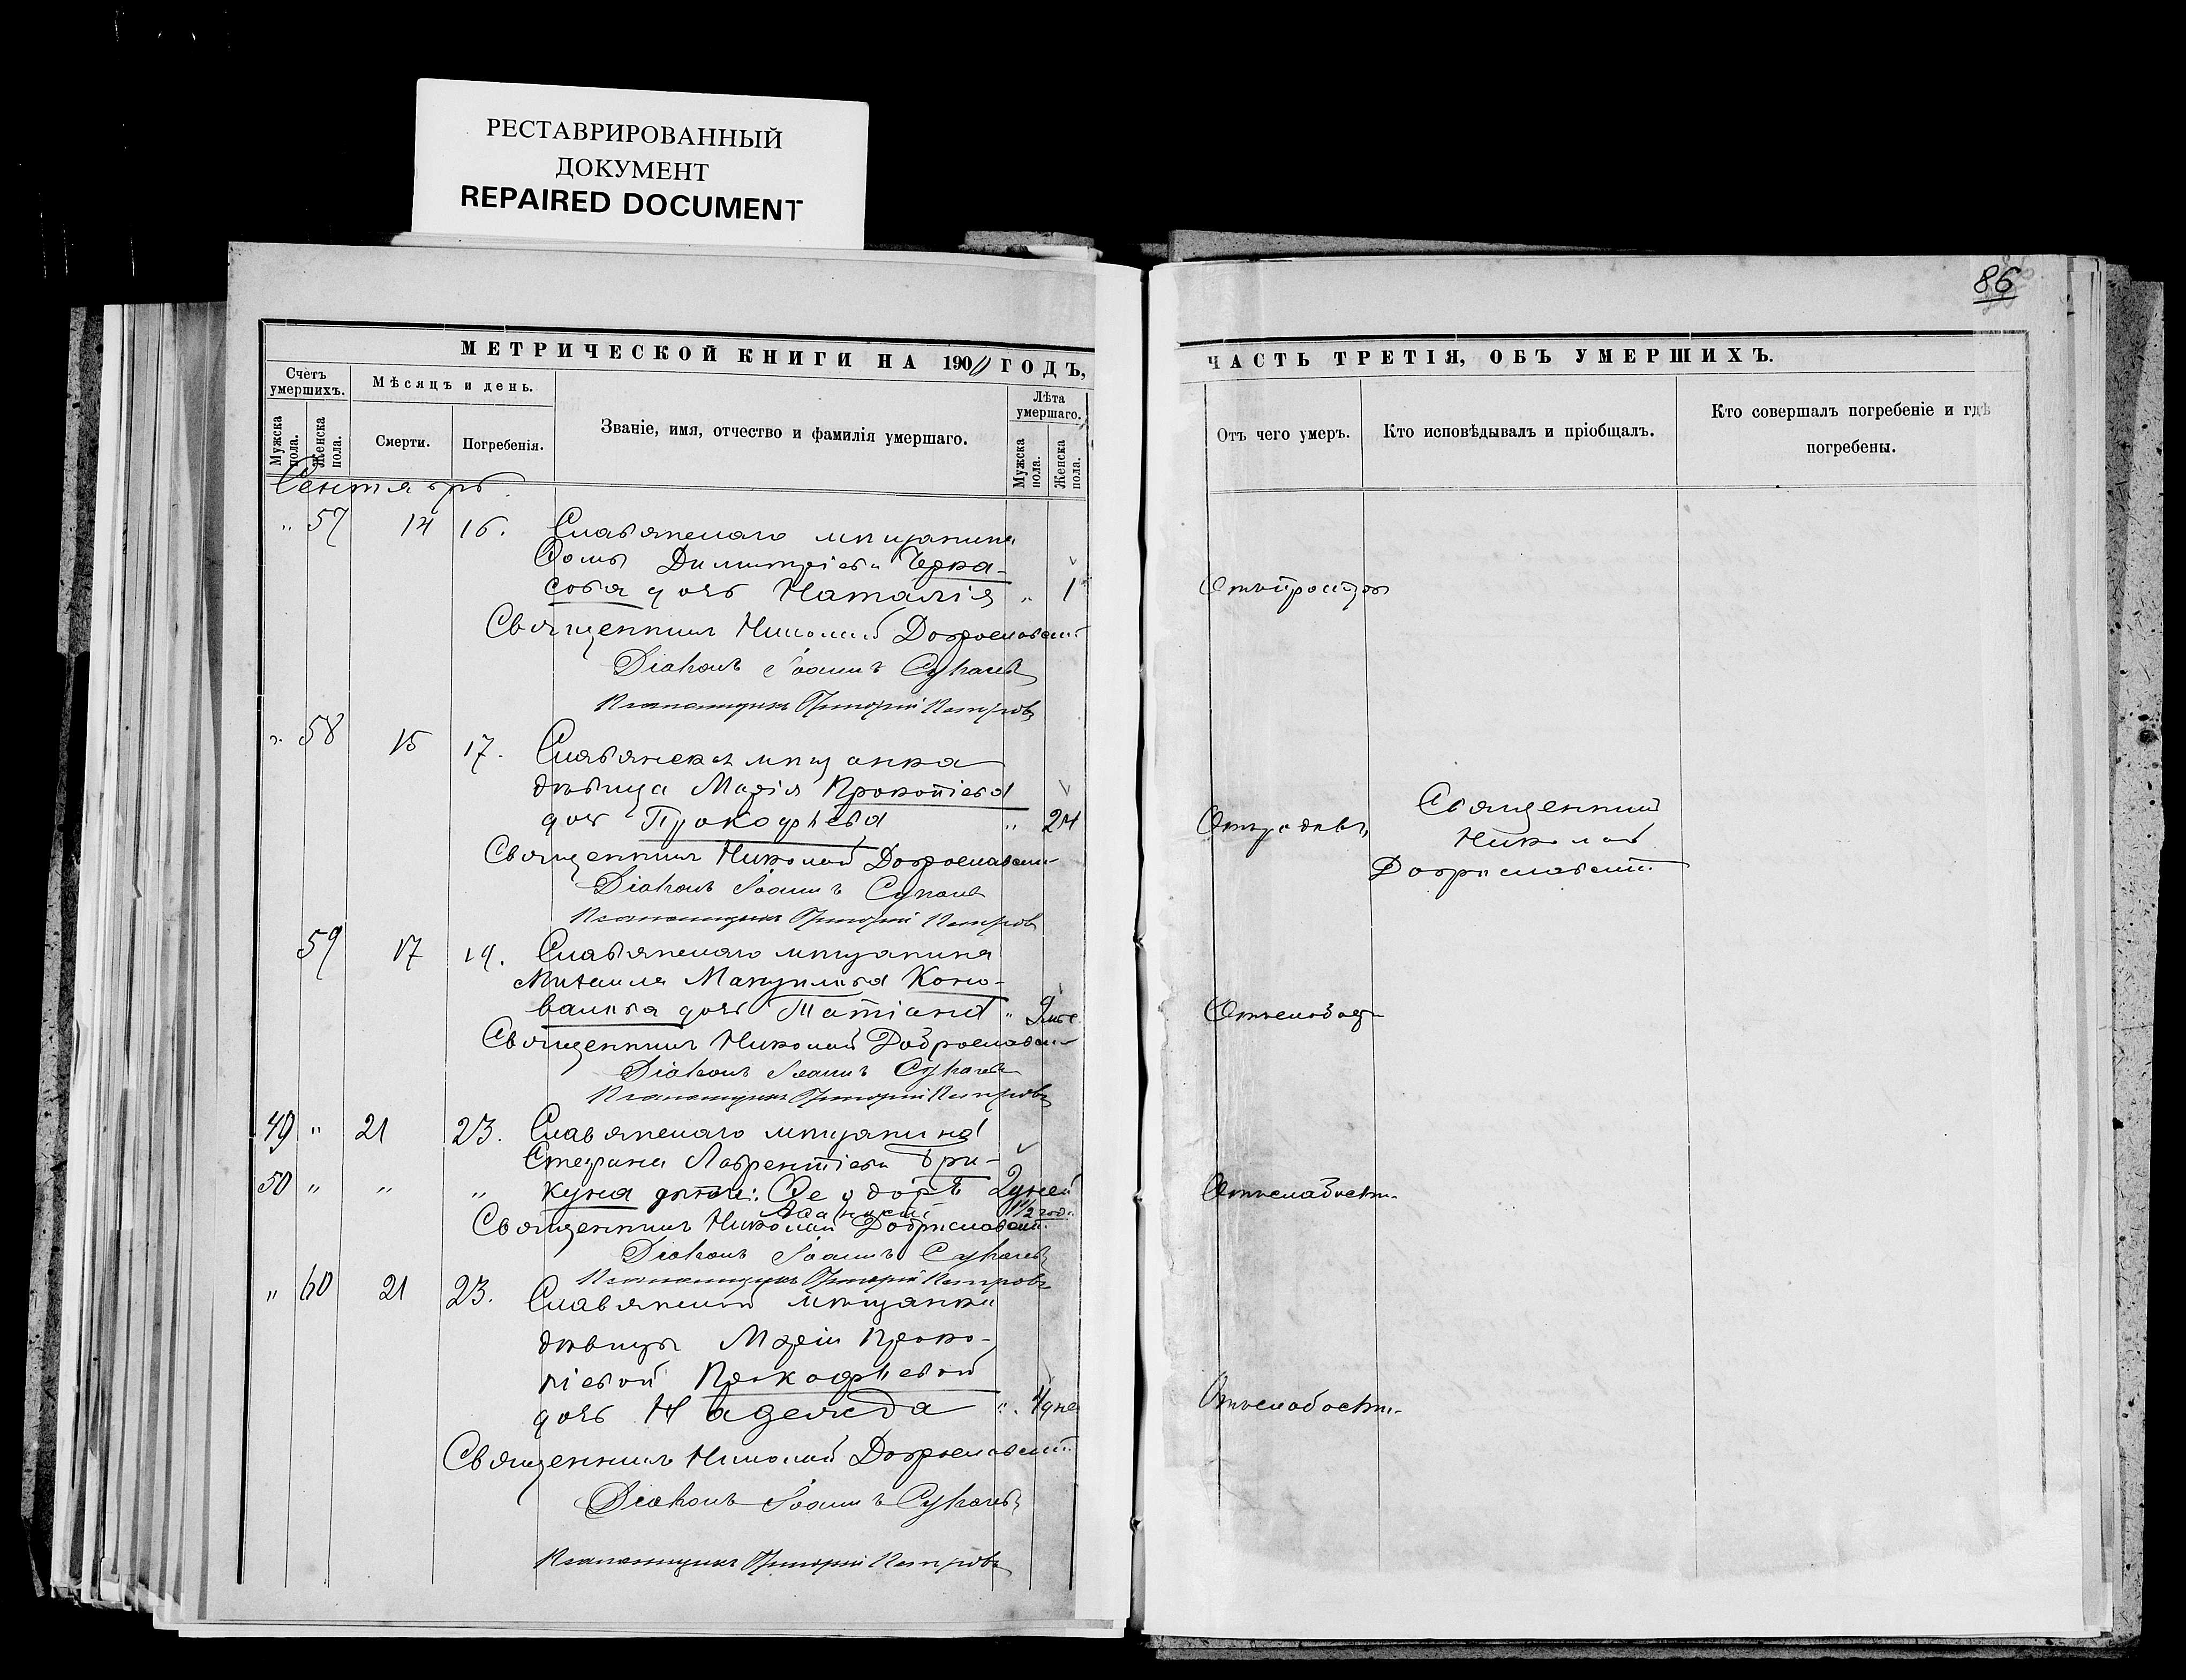 РЕСТАВРИРОВАННЫЙ
ДОКУМЕНТ
REPAIRED DOCUMENT
86
МЕТРИЧЕСКОЙ КНИГИ НА 190 ГОДЪ,
ЧАСТЬ ТРЕТІЯ, ОБЪ УМЕРШИХЪ.
Счетъ умершихъ.
Мужска пола.
Женска пола.
Мѣсяцъ и день.
Смерти.
Погребенія.
Званіе, имя, отчество и фамилія умершаго.
Лѣта умершаго.
Мужска пола.
Женска пола.
Отъ чего умеръ.
Кто исповѣдывалъ и пріобщалъ.
Кто совершалъ погребеніе и гдѣ
погребены.
Сентябрь.
" 57 14 16. Славянскаго мѣщанина
Ѳомы Димитріева Черка-
сова дочь Наталія " 1
Священникъ Николай Доброславскій
Діаконъ Іоаннъ Сукачевъ
Псаломщикъ Григорій Петровъ
" 58 15 17. Славянская мѣщанка
дѣвица Марія Прокопіева
дочь Прокофьева " 24
Отъ родовъ
Священникъ
Николай
Доброславскій
Священникъ Николай Доброславскій
Діаконъ Іоаннъ Сукачевъ
Псаломщикъ Григорій Петровъ
59 17 19. Славянскаго мѣщанина
Михаила Коно-
валова дочь Татіана " 9 мѣс
Священникъ Николай Доброславскій
Діаконъ Іоаннъ Сукачевъ
Псаломщикъ Григорій Петровъ
49 " 21 23. Славянскаго мѣщанина
Стефана Лаврентіева Три-
50 " " " куна дѣти: Ѳеодоръ 2 дней
1/2 год.
Отъ слабости.
Священникъ Николай Доброславскій
Діаконъ Іоаннъ Сукачевъ
Псаломщикъ Григорій Петровъ
" 60 21 23. Славянской мѣщанки
дѣвицы Маріи Проко-
піевой Прокофьевой
дочь Надежда " 4 дне
Отъ слабости.
Священникъ Николай Доброславскій
Діаконъ Іоаннъ Сукачевъ
Псаломщикъ Григорій Петровъ